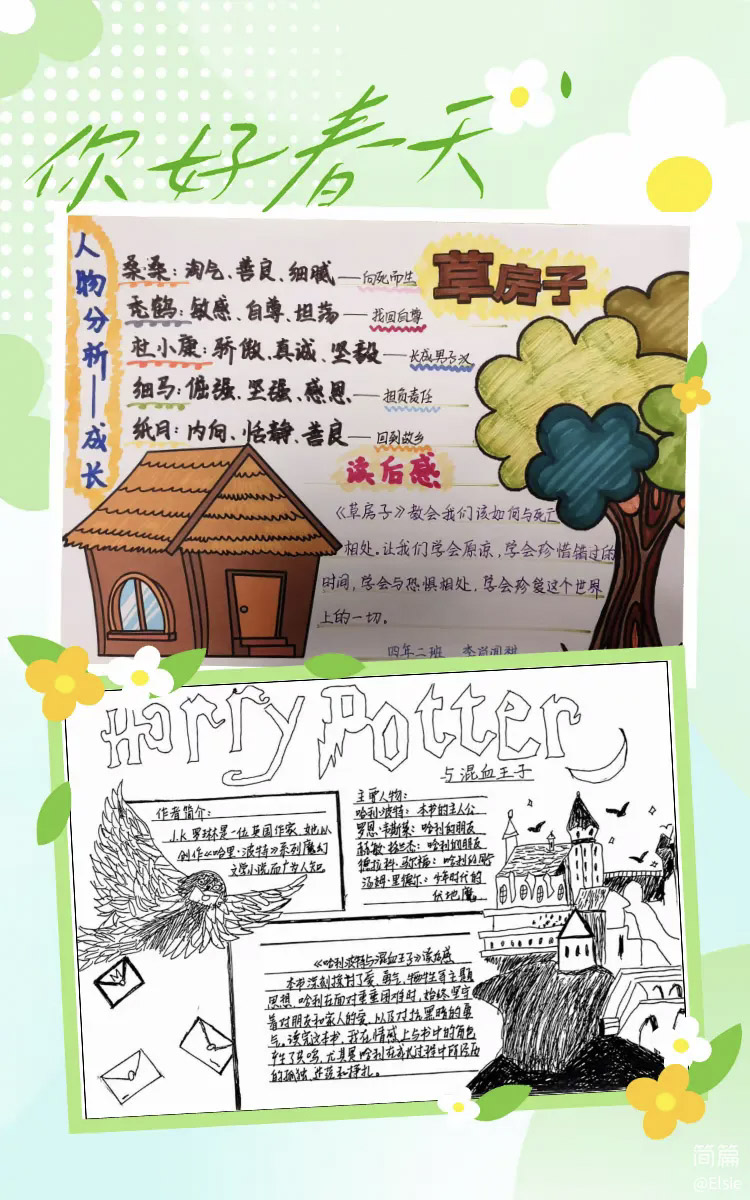 你好春天
人物分析——成长
草房子
桑桑：淘气、善良、细腻——向死而生
秃鹤：敏感、自尊、坦荡——找回自尊
杜小康：骄傲、真诚、坚毅——长成男子汉
细马：倔强、坚强、感恩——担负责任
纸月：内向、恬静、善良——回到故乡
读后感
《草房子》教会我们该如何与死亡
相处。让我们学会原谅，学会珍惜错过的
时间，学会与恐惧相处，学会珍爱这个世界
上的一切。
四年二班
Harry Potter
与混血王子
作者简介：
J.K.罗琳是一位英国作家，她从
创作《哈里·波特》系列魔幻
文学小说而广为人知
主要人物：
哈利·波特：本书的主人公
罗恩·韦斯莱：哈利的朋友
赫敏·格兰杰：哈利的朋友
德拉科·马尔福：哈利的
汤姆·里德尔：少年时代的
伏地魔
《哈利波特与混血王子》读后感
本书深刻探讨了爱、勇气、牺牲等主题
思想，哈利在面对重重困难时，始终坚守
着对朋友和家人的爱，以及对抗黑暗的勇
气。读完这本书，我在情感上与书中的角色
产生了共鸣，尤其是哈利在成长过程中所经历
的孤独、迷茫和挣扎。
简篇
@Elsie